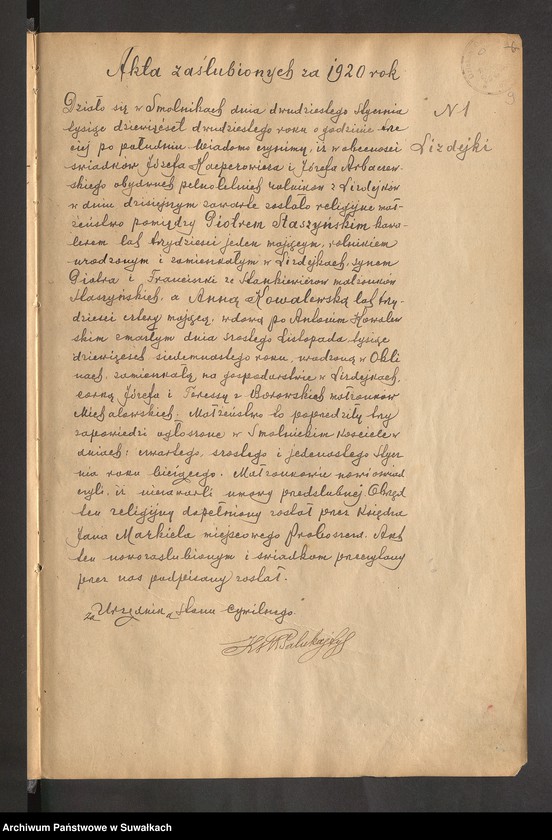 Akta zaślubionych za 1920 rok
N 1
Lizdejki
Działo się w Smolnikach dnia dwudziestego Stycznia
tysiąc dziewięćset dwudziestego roku o godzinie trze
ciej po południu Wiadomo czynimy, iż w obecności
świadków Józefa Kacperowicza i Józefa Arbacew-
skiego obydwuch pełnoletnich rolników z Lizdejków
w dniu dzisiejszym zawarte zostało religijne mał-
żeństwo pomiędzy Piotrem Staszyńskim kawa-
lerem lat trzydzieści jeden mającym, rolnikiem
urodzonym i zamieszkałym w Lizdejkach, synem
Piotra i Franciszki ze Stankiewiczów małżonków
Staszyńskich, a Anną Kowalewską lat trzy-
dzieści cztery mającą, wdową po Antonim Kowalew
skim zmarłym dnia szóstego Listopada tysiąc
dziewięćset siedemnastego roku, urodzoną w
zamieszkałą na gospodarstwie w Lizdejkach,
córką Józefa i Teressy z Borowskich małżonków
Michalewskich. Małżeństwo to poprzedziły trzy
zapowiedzi ogłoszone w Smolnickim Kościele w
dniach: czwartego, szóstego i jedenastego Stycz-
nia roku bieżącego. Małżonkowie nowi oświad
czyli, iż niezawarli umowy przedślubnej. Obrzęd
ten religijny dopełniony został przez Księdza
Jana Markiela miejscowego Proboszcza. Akt
ten nowozaślubionym i świadkom przeczytany
przez nas podpisany został.
za Urzędnika Stanu Cywilnego
Archiwum Państwowe w Suwałkach